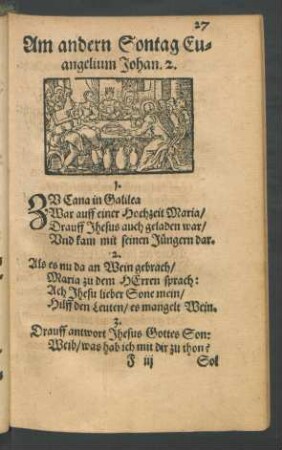 27
Am andern Sontag Eu-
angelium Johan. 2.
1.
ZV Cana in Galilea
War auff einer Hochzeit Maria/
Drauff Jhesus auch geladen war/
Vnd kam mit seinen Jüngern dar.
2.
Als es nu da an Wein gebrach/
Maria zu dem HErren sprach:
Ach Jhesu lieber Sone mein/
Hilff den Leuten/ es mangelt Wein.
3.
Drauff antwort Jhesus Gottes Son:
Weib/ was hab ich mit dir zu thon?
F iij
Sol